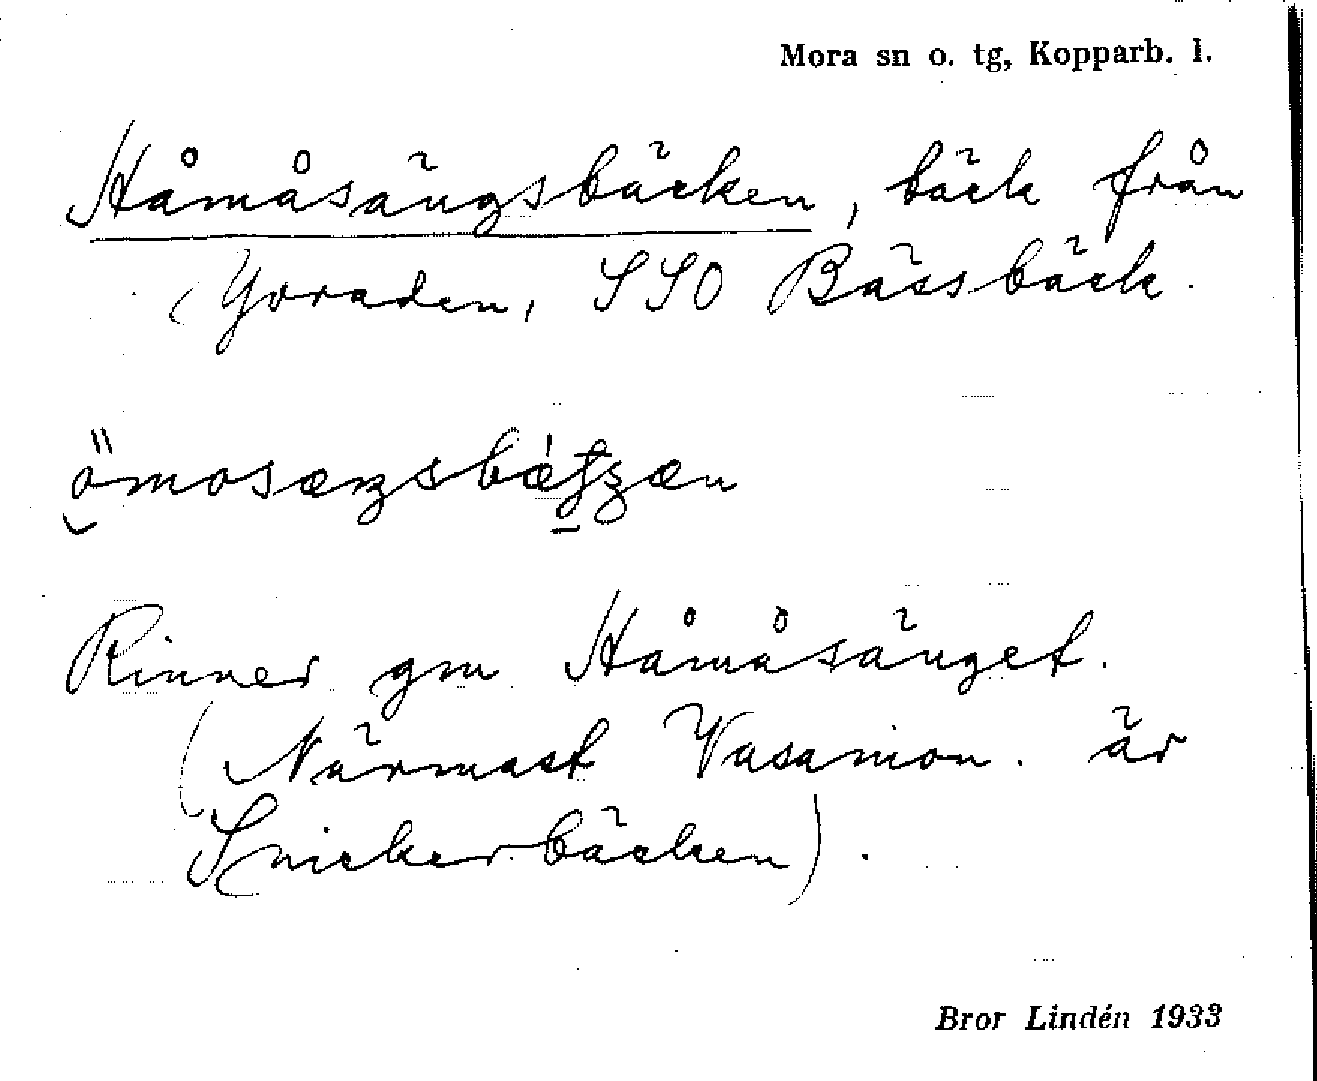 Mora sn o. tg, Kopparb. l.
Håmåsängsbäcken, bäck från
Gvraden, SSO Bässbäck.
Rinner gm Håmåsänget.
(Närmast Vasamon. är
Snickerbäcken).
Bror Lindén 1933